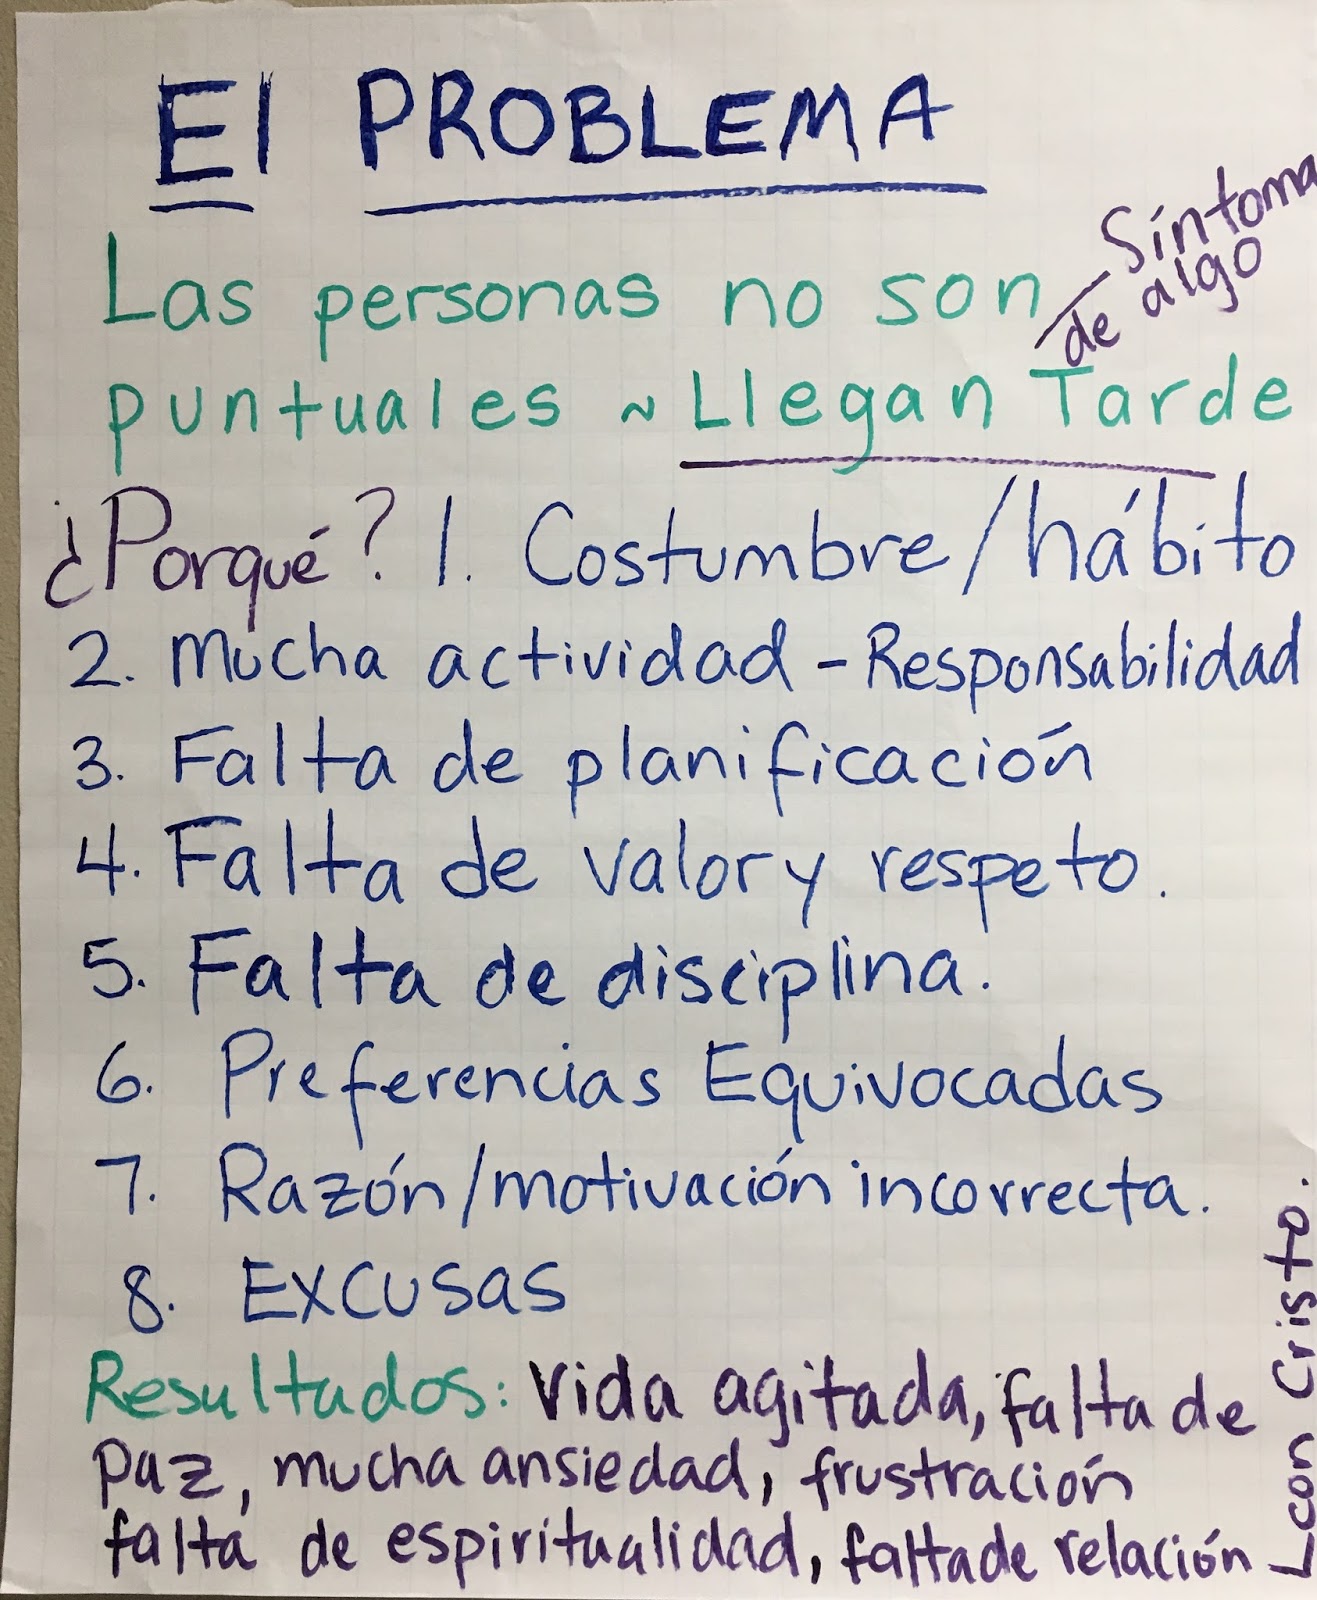 El PROBLEMA
Las personas no son
Síntoma
de algo
puntuales ~ Llegan Tarde
¿Porqué? 1. Costumbre/hábito
2. Mucha actividad - Responsabilidad
3. Falta de planificación
4. Falta de valor y respeto.
5. Falta de disciplina.
6. Preferencias Equivocadas
7. Razón/motivación incorrecta.
8. EXCUSAS
Resultados: Vida agitada, falta de
paz, mucha ansiedad, frustración
falta de espiritualidad, falta de relación
con Cristo.